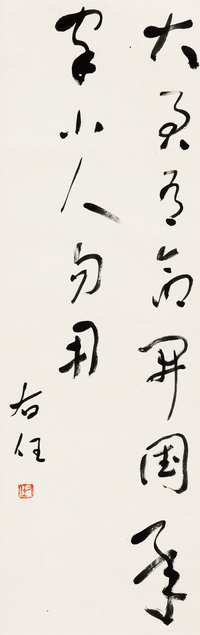 大君有命開國承
家小人勿用
右任